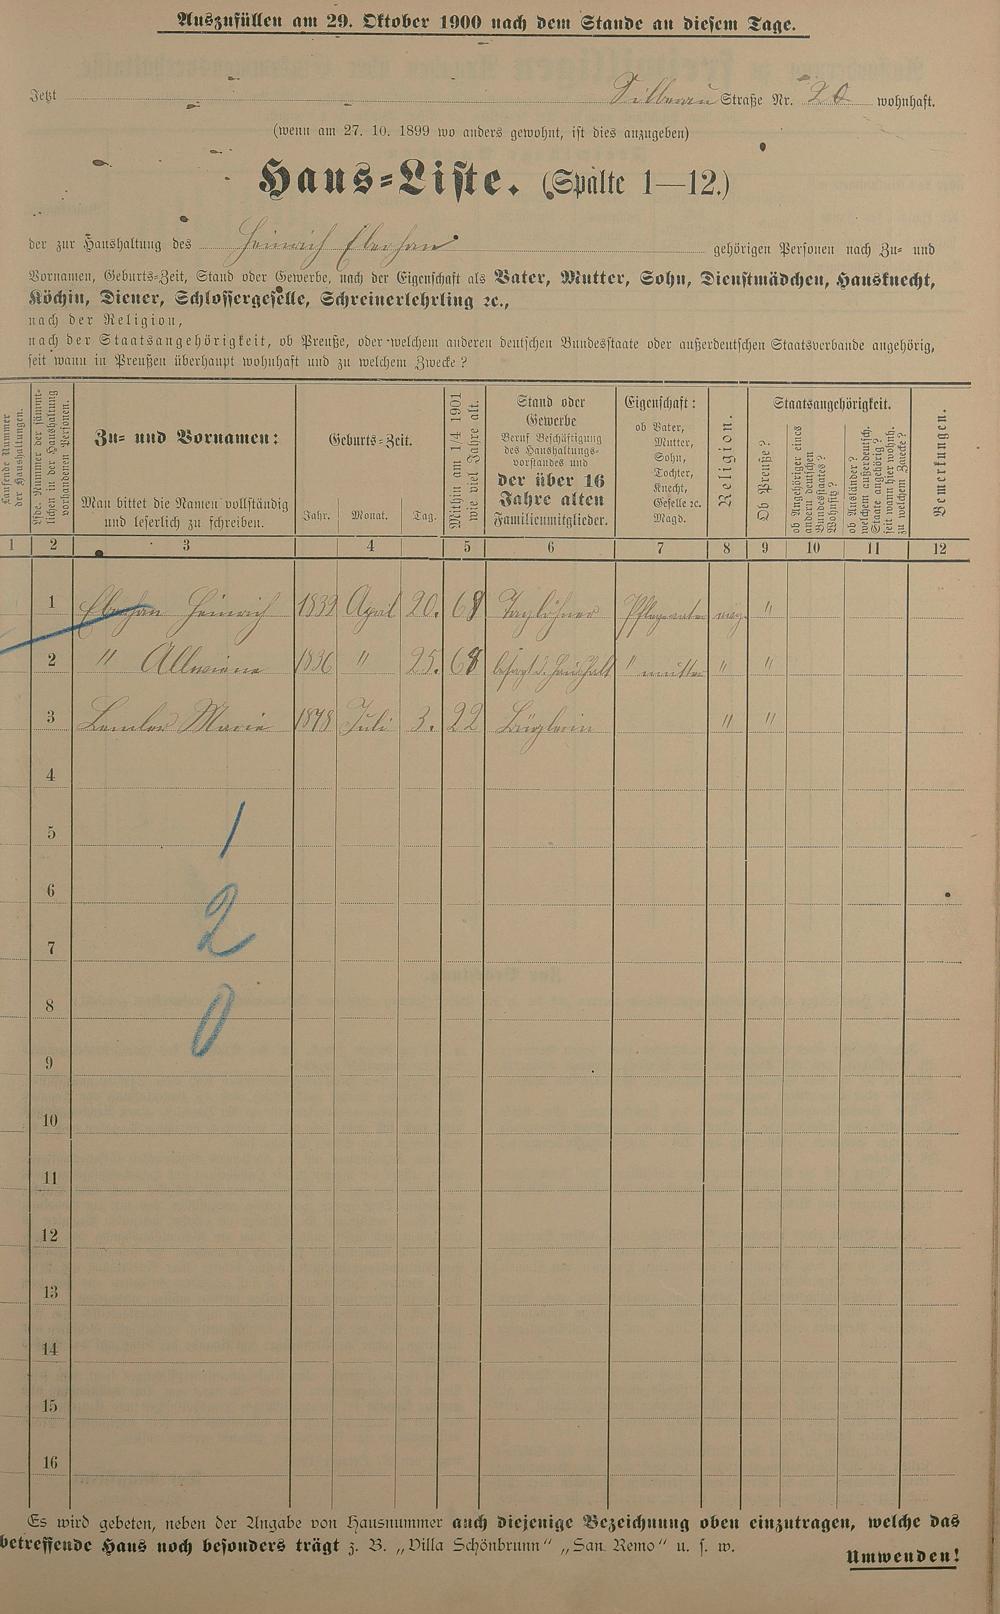 Auszufüllen am 29. Oktober 1900 nach dem Stande an diesem Tage.
Jetzt Straße Nr. 20 wohnhaft.
(wenn am 27. 10. 1899 wo anders gewohnt, ist dies anzugeben)
Haus-Liste. (Spalte 1—12.)
der zur Haushaltung des Heinrich Eberhan gehörigen Personen nach Zu- und
Vornamen, Geburts-Zeit, Stand oder Gewerbe, nach der Eigenschaft als Vater, Mutter, Sohn, Dienstmädchen, Hausknecht,
Köchin, Diener, Schlossergeselle, Schreinerlehrling ꝛc.,
nach der Religion,
nach der Staatsangehörigkeit, ob Preuße, oder welchem anderen deutschen Bundesstaate oder außerdeutschen Staatsverbande angehörig,
seit wann in Preußen überhaupt wohnhaft und zu welchem Zwecke?
Laufende Nummer
der Haushaltungen.
Lfde. Nummer der sämmt-
lichen in der Haushaltung
vorhandenen Personen.
Zu- und Vornamen:
Man bittet die Namen vollständig
und leserlich zu schreiben.
Geburts-Zeit.
Jahr. Monat. Tag.
Mithin am 1/4 1901
wie viel Jahre alt.
Stand oder
Gewerbe
Beruf Beschäftigung
des Haushaltungs-
vorstandes und
der über 16
Jahre alten
Familienmitglieder.
Eigenschaft:
ob Vater,
Mutter,
Sohn,
Tochter,
Knecht,
Geselle ꝛc.
Magd.
Religion.
Staatsangehörigkeit.
Ob Preuße?
ob Angehöriger eines
andern deutschen
Bundesstaates?
Wohnsitz?
ob Ausländer?
welchem außerdeutsch.
Staate angehörig?
seit wann hier wohnh.
zu welchem Zwecke?
Bemerkungen.
1 2 3 4 5 6 7 8 9 10 11 12
1 Eberhan Heinrich 1832 April 20. 68 Taglöhner Pflegevater evag. "
2 " Allwiene 1836 " 25. 68 besorgt d. Haushalt " mutter " "
3 Marie 1878 Juli 3. 22 Büglerin " "
4
5
1
6
2
7
8
0
9
10
11
12
13
14
15
16
Es wird gebeten, neben der Angabe von Hausnummer auch diejenige Bezeichnung oben einzutragen, welche das
betreffende Haus noch besonders trägt z. B. „Villa Schönbrunn“ „San Remo“ u. s. w.
Umwenden!